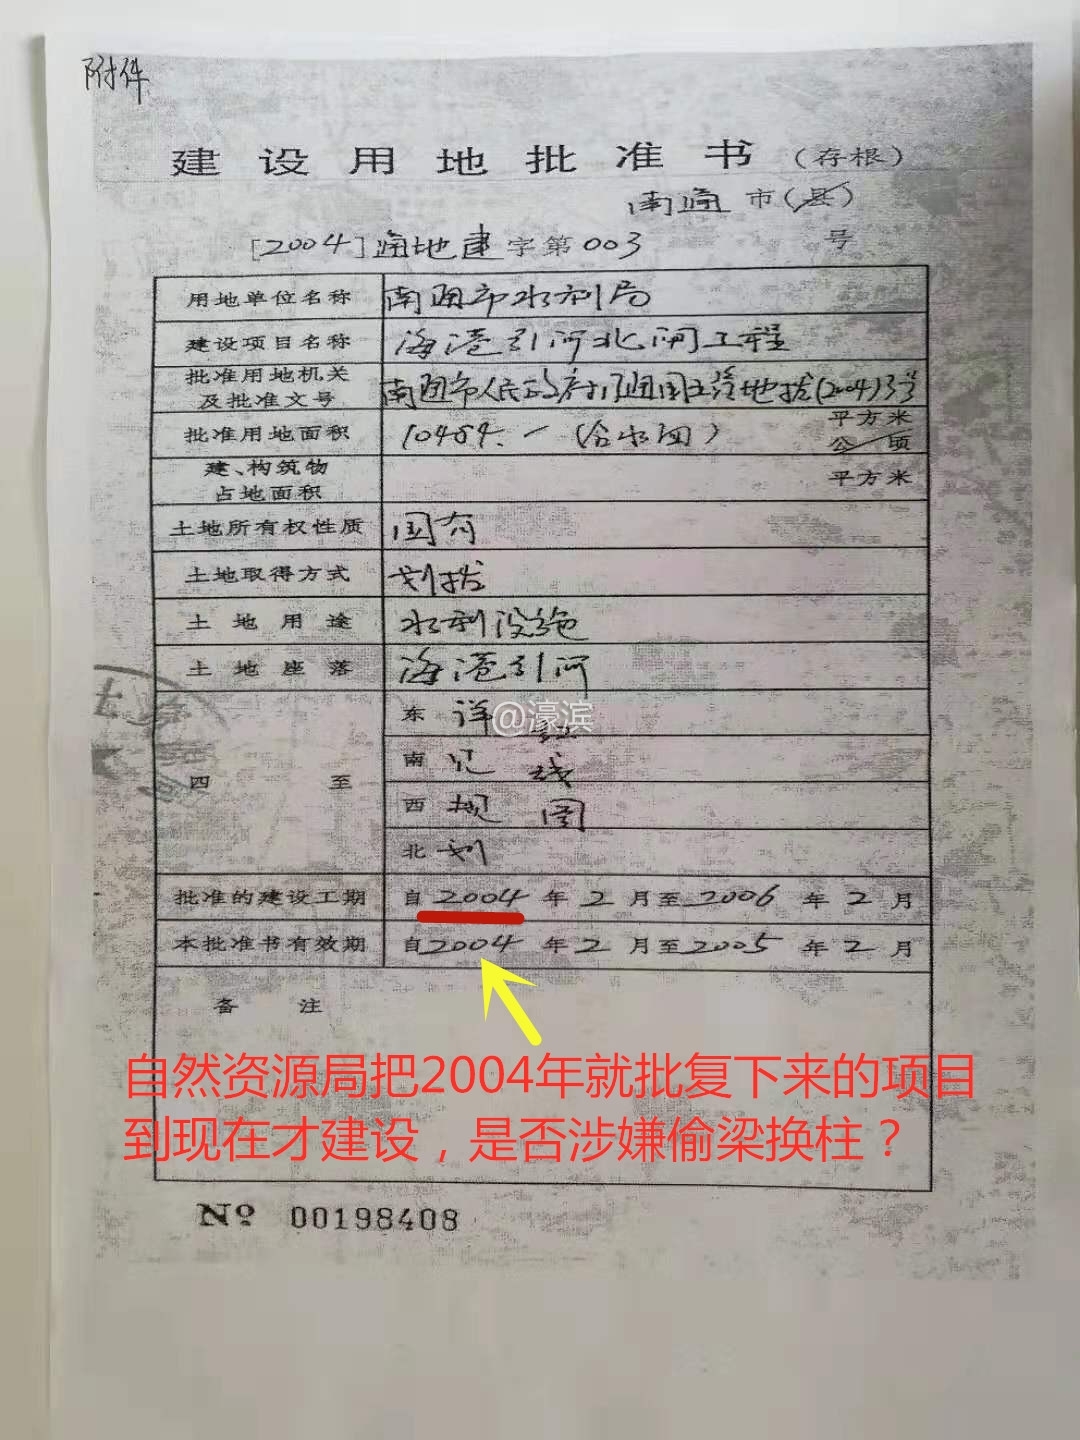 附件
建设用地批准书（存根）
南通市（县）
[2004]通地建字第003号
用地单位名称 南通市水利局
建设项目名称 海港引河北闸工程
批准用地机关及批准文号 南通市人民政府 通国土 地拨(2004)3号
批准用地面积 10484.一（含水面） 平方米 公顷
建、构筑物占地面积 平方米
土地所有权性质 国有
土地取得方式 划拨
土地用途 水利设施
土地座落 海港引河
四至
东 详 红
@濠滨
南 见 线
西 规 图
北 划
批准的建设工期 自2004年2月至2006年2月
本批准书有效期 自2004年2月至2005年2月
备注
自然资源局把2004年就批复下来的项目
到现在才建设，是否涉嫌偷梁换柱？
No 00198408